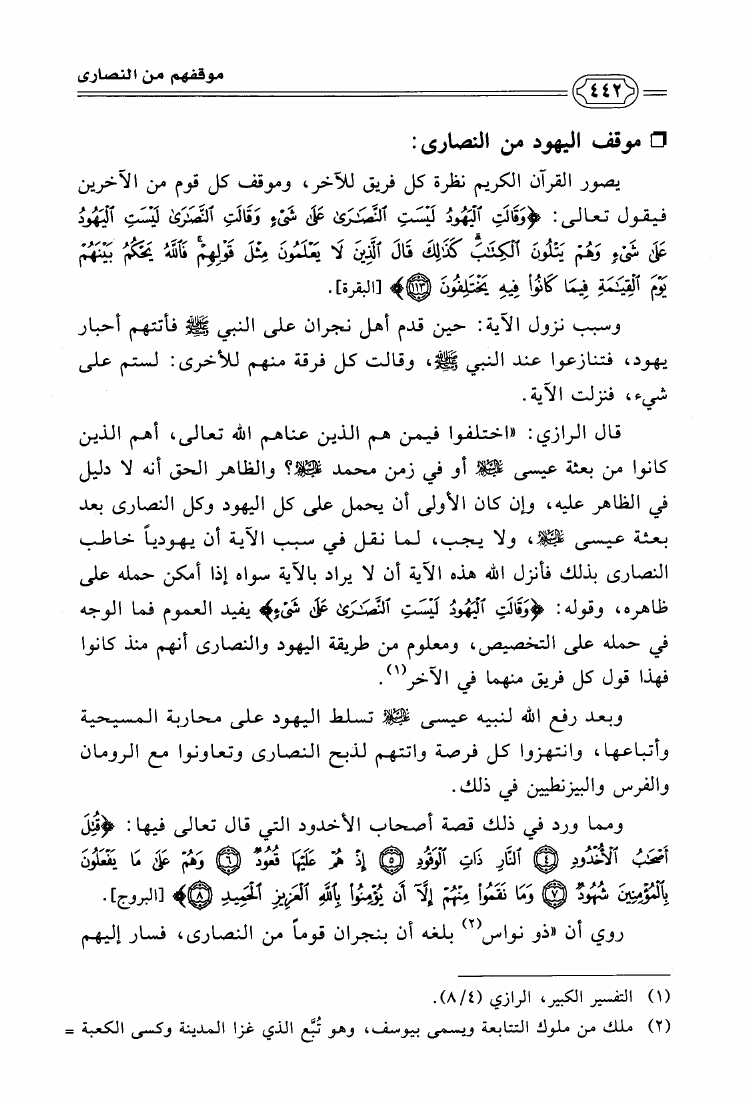 موقفهم من النصارى
٤٤٢
❒ موقف اليهود من النصارى:
يصور القرآن الكريم نظرة كل فريق للآخر، وموقف كل قوم من الآخرين
فيقول تعالى: ﴿وَقَالَتِ الْيَهُودُ لَيْسَتِ النَّصَٰرَىٰ عَلَىٰ شَىْءٍ وَقَالَتِ النَّصَٰرَىٰ لَيْسَتِ الْيَهُودُ
عَلَىٰ شَىْءٍ وَهُمْ يَتْلُونَ الْكِتَٰبَ ۗ كَذَٰلِكَ قَالَ الَّذِينَ لَا يَعْلَمُونَ مِثْلَ قَوْلِهِمْ ۚ فَاللَّهُ يَحْكُمُ بَيْنَهُمْ
يَوْمَ الْقِيَٰمَةِ فِيمَا كَانُوا فِيهِ يَخْتَلِفُونَ ١١٣﴾ [البقرة].
وسبب نزول الآية: حين قدم أهل نجران على النبي ﷺ فأتتهم أحبار
يهود، فتنازعوا عند النبي ﷺ، وقالت كل فرقة منهم للأخرى: لستم على
شيء، فنزلت الآية.
قال الرازي: «اختلفوا فيمن هم الذين عناهم الله تعالى، أهم الذين
كانوا من بعثة عيسى عليه السلام أو في زمن محمد عليه السلام؟ والظاهر الحق أنه لا دليل
في الظاهر عليه، وإن كان الأولى أن يحمل على كل اليهود وكل النصارى بعد
بعثة عيسى عليه السلام، ولا يجب، لما نقل في سبب الآية أن يهودياً خاطب
النصارى بذلك فأنزل الله هذه الآية أن لا يراد بالآية سواه إذا أمكن حمله على
ظاهره، وقوله: ﴿وَقَالَتِ الْيَهُودُ لَيْسَتِ النَّصَٰرَىٰ عَلَىٰ شَىْءٍ﴾ يفيد العموم فما الوجه
في حمله على التخصيص، ومعلوم من طريقة اليهود والنصارى أنهم منذ كانوا
فهذا قول كل فريق منهما في الآخر(١).
وبعد رفع الله لنبيه عيسى عليه السلام تسلط اليهود على محاربة المسيحية
وأتباعها، وانتهزوا كل فرصة واتتهم لذبح النصارى وتعاونوا مع الرومان
والفرس والبيزنطيين في ذلك.
ومما ورد في ذلك قصة أصحاب الأخدود التي قال تعالى فيها: ﴿قُتِلَ
أَصْحَٰبُ الْأُخْدُودِ ٤ النَّارِ ذَاتِ الْوَقُودِ ٥ إِذْ هُمْ عَلَيْهَا قُعُودٌ ٦ وَهُمْ عَلَىٰ مَا يَفْعَلُونَ
بِالْمُؤْمِنِينَ شُهُودٌ ٧ وَمَا نَقَمُوا مِنْهُمْ إِلَّا أَن يُؤْمِنُوا بِاللَّهِ الْعَزِيزِ الْحَمِيدِ ٨﴾ [البروج].
روي أن «ذو نواس(٢) بلغه أن بنجران قوماً من النصارى، فسار إليهم
(١) التفسير الكبير، الرازي (٨/٤).
(٢) ملك من ملوك التتابعة ويسمى بيوسف، وهو تُبَّع الذي غزا المدينة وكسى الكعبة =